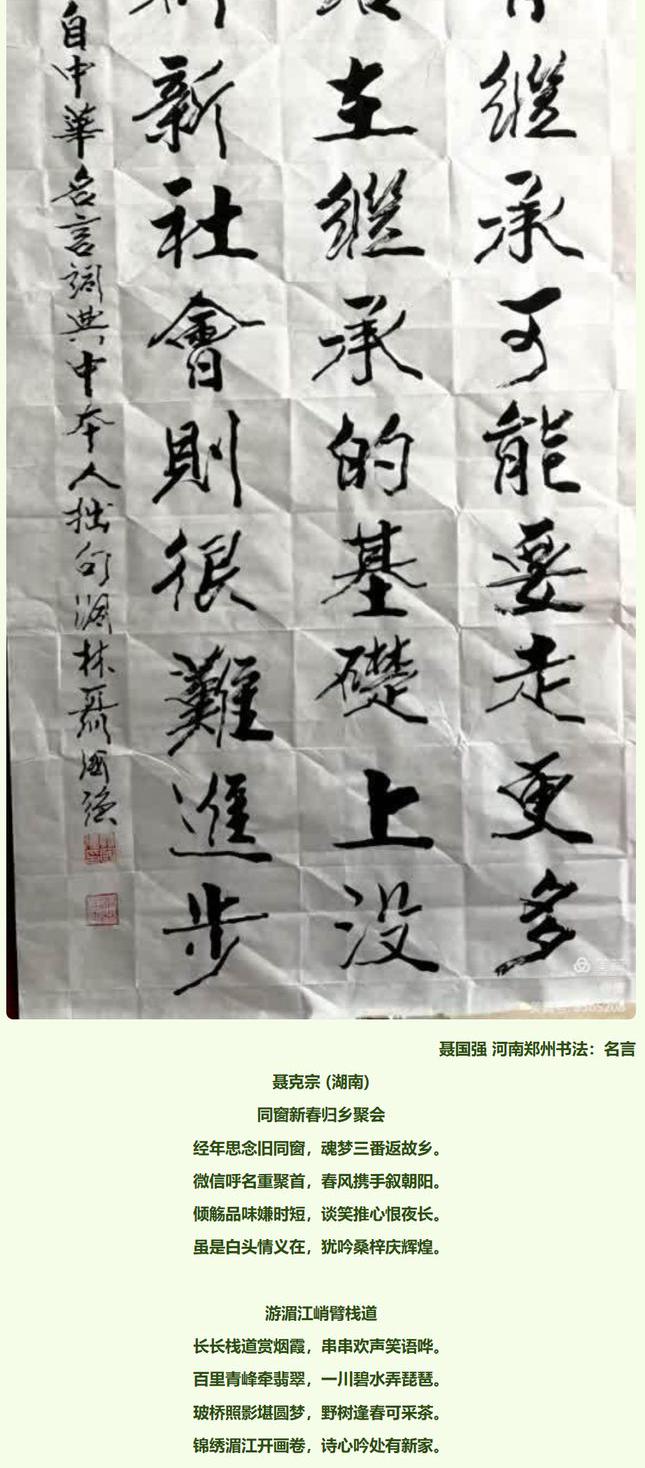 繼承可能要走更多
在繼承的基礎上没
新社會則很難進步
自中華名言詞典中本人拙句林聶國強
聂国强 河南郑州书法：名言
聂克宗 (湖南)
同窗新春归乡聚会
经年思念旧同窗，魂梦三番返故乡。
微信呼名重聚首，春风携手叙朝阳。
倾觞品味嫌时短，谈笑推心恨夜长。
虽是白头情义在，犹吟桑梓庆辉煌。
游湄江峭臂栈道
长长栈道赏烟霞，串串欢声笑语哗。
百里青峰牵翡翠，一川碧水弄琵琶。
玻桥照影堪圆梦，野树逢春可采茶。
锦绣湄江开画卷，诗心吟处有新家。